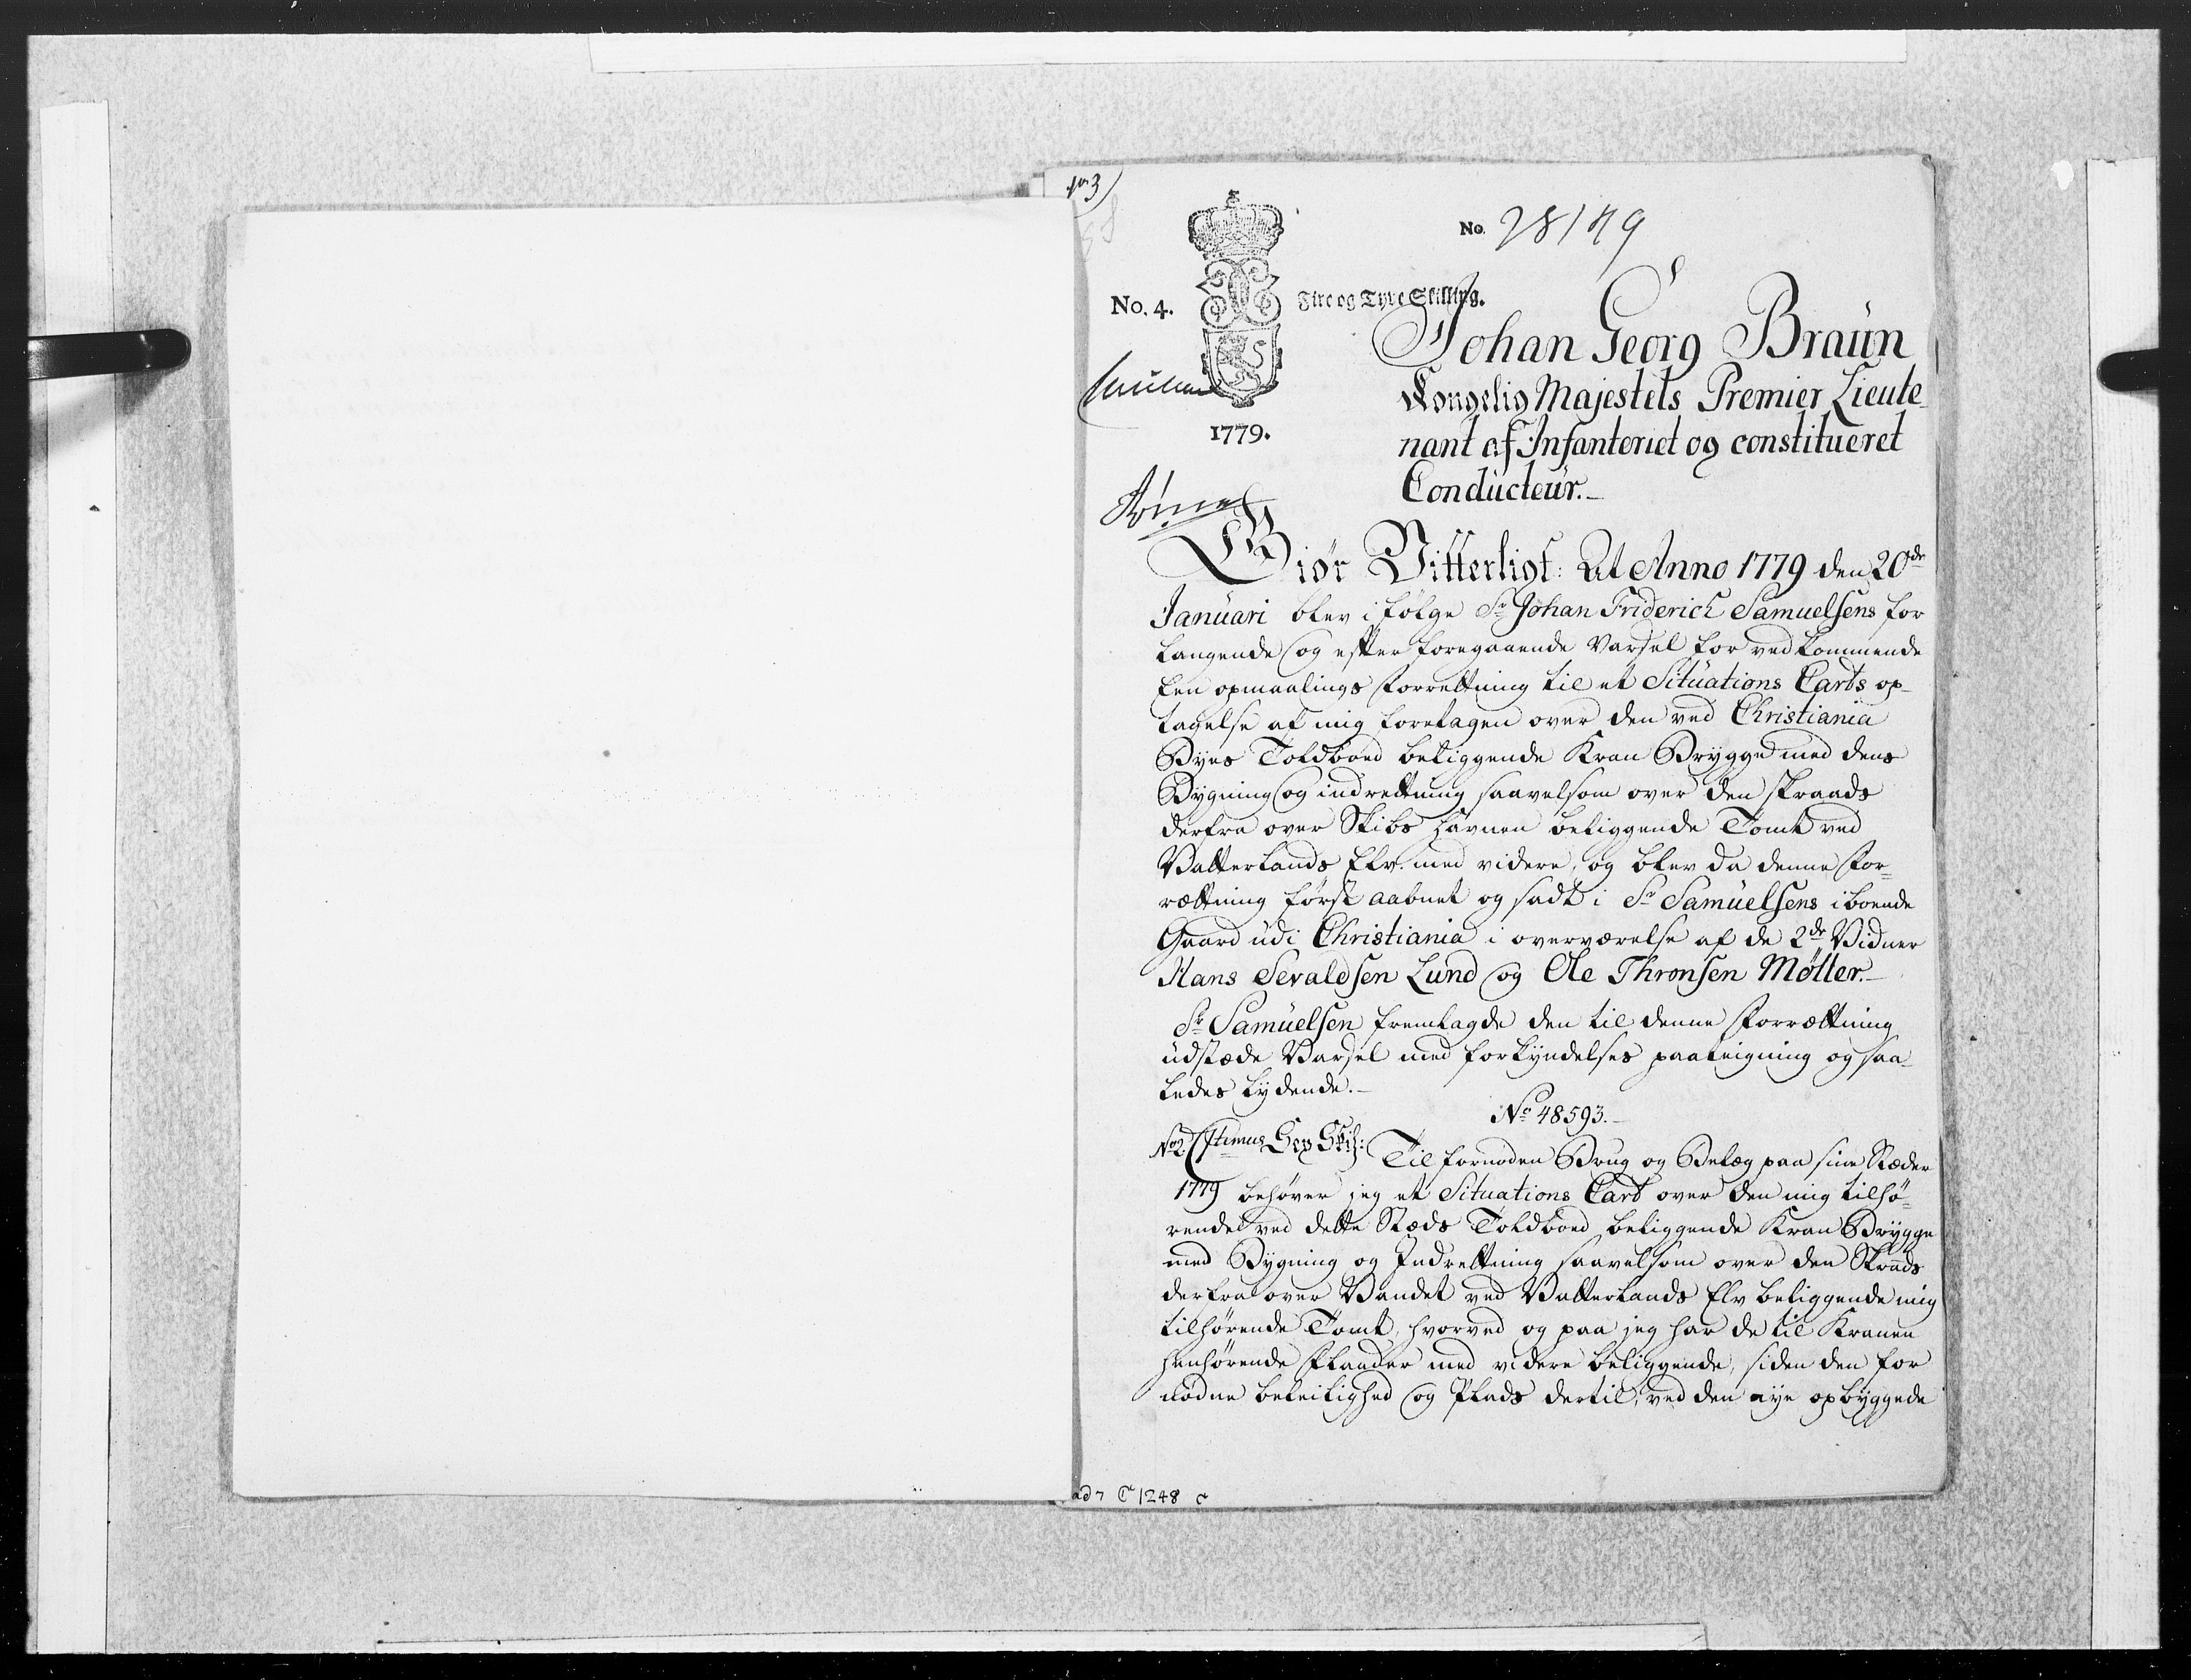 No 3)
No. 28149
No. 4. Fire og Tyve Skilling.
1779.
Johan Georg Braün
Kongelig Majestets Premier Lieute-
nant af Infanteriet og constitueret
Conducteür.-
Giør Vitterligt: At Anno 1779 den 20de
Januari blev ifølge Sr Johan Friderich Samuelsens for
langende og efter foregaaende Varsel for vedkommende
Een opmaalings Forrettning til et Situations Carts op-
tagelse af mig foretagen over den ved Christiania
Byes Toldboed beliggende Kran Brygge med dens
Bygning og indrettning saavelsom over den strands
derfra over Skibs havnen beliggende Tomt ved
Vatterlands Elv med videre, og blev da denne For-
rættning først aabnet og sadt i Sr Samüelsens iboende
Gaard üdi Christiania i overværelse af de 2de Vidner
Hans Sevaldsen Lund og Ole Thronsen Møller.-
Sr Samüelsen fremlagde den til denne Forrættning
üdstæde Varsel med forkyndelses paateigning og saa-
ledes lydende.-
No 48593.-
No 2 Sex Skil:
1779
Til fornøden Brug og Belæg paa sine Stæder
behøver jeg et Situations Cart over den mig tilhø-
rende ved dette Stæds Toldboed beliggende Kran Brygge
med Bygning og Indrettning saavelsom over den Strands
derfra over Vandet ved Vatterlands Elv beliggende mig
tilhørende Tomt, hvorved og paa jeg har de til Kranen
henhørende Flaader med videre beliggende, siden den for
nødne beleilighed og Plads dertil, ved den nye opbyggede
ad 7 Ca 1248 a